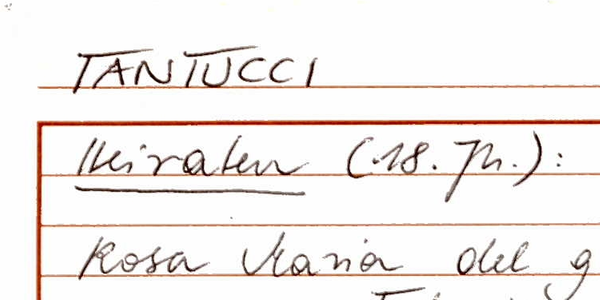 TANTUCCI
Heiraten (18. Jh.):
Rosa Maria del g